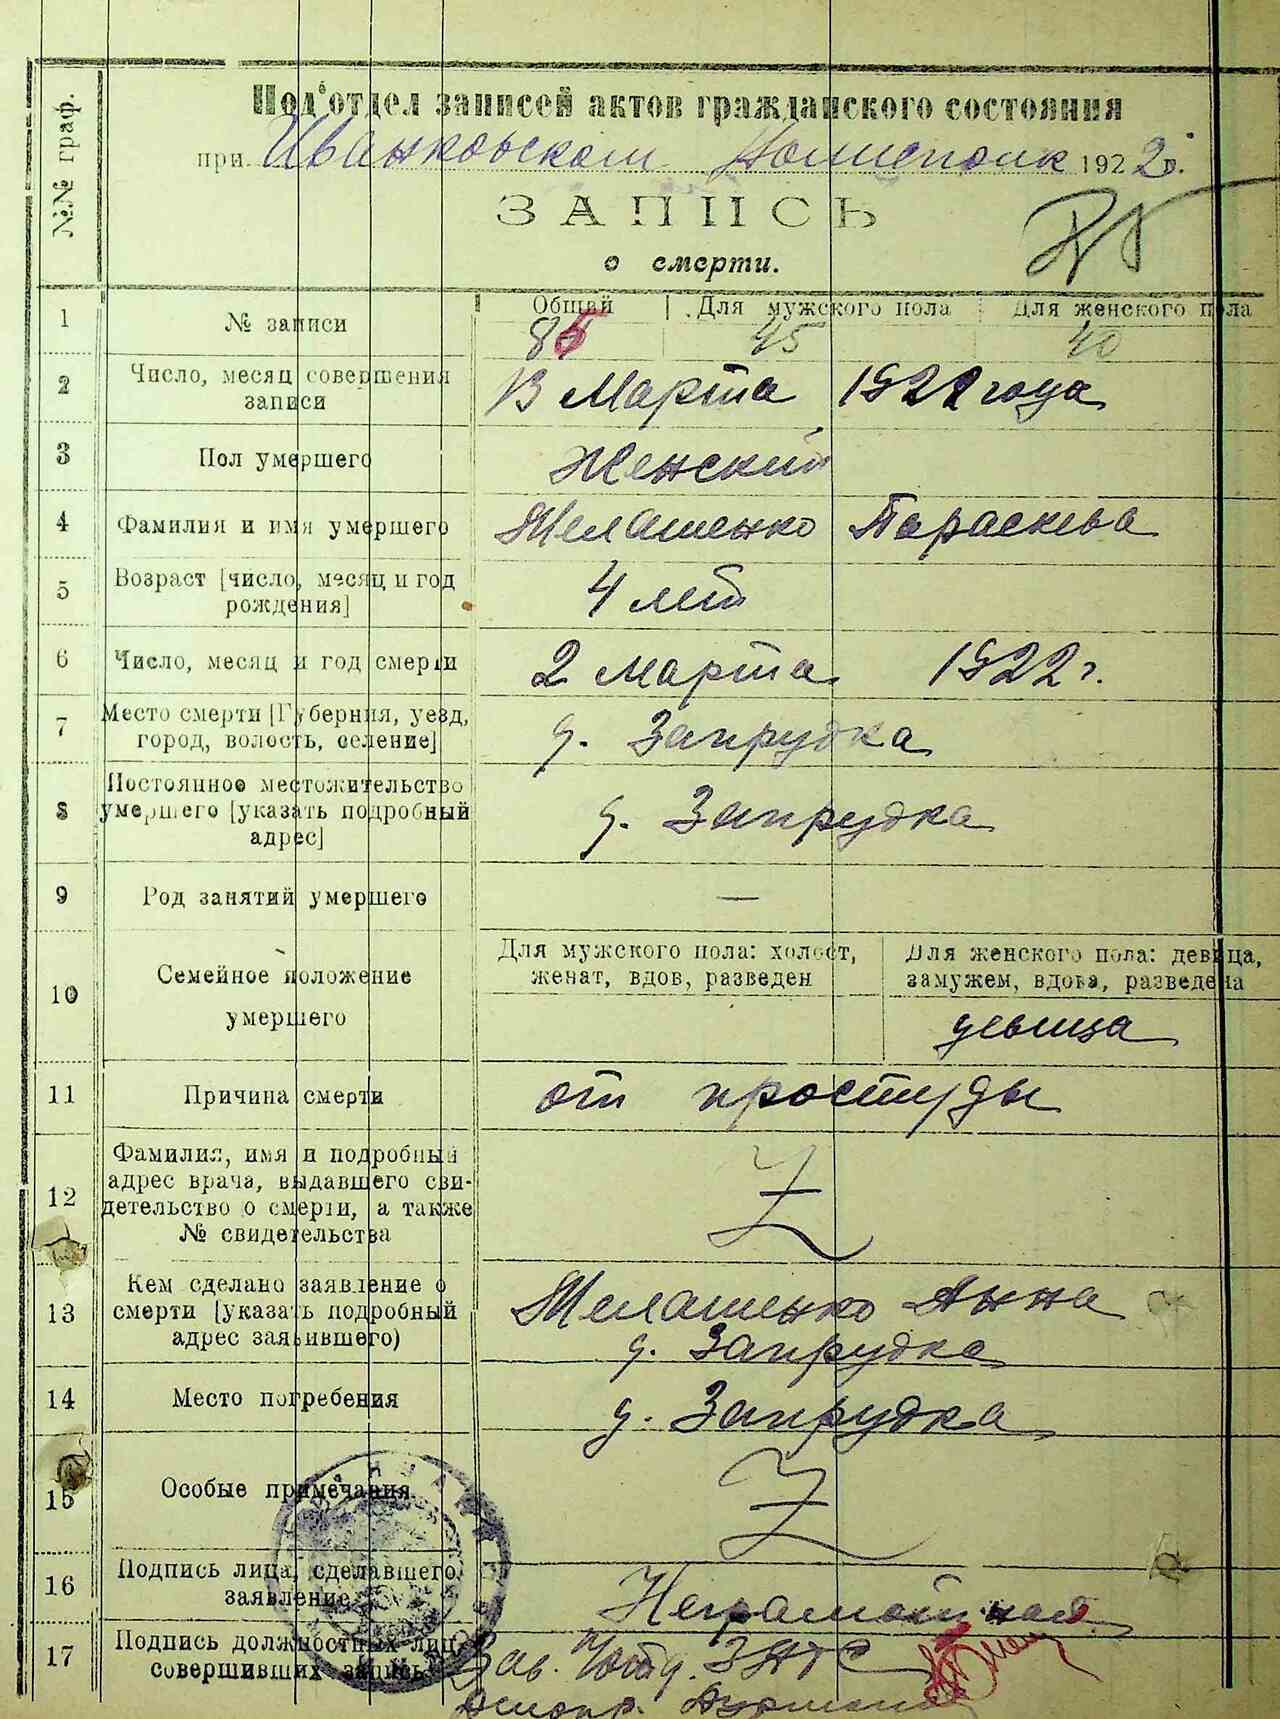 №№ граф.
Под'отдел записей актов гражданского состояния
при Иванковском 1922 г.
ЗАПИСЬ
о смерти.
Общий Для мужского пола Для женского пола
1 № записи 85 45 40
2 Число, месяц совершения
записи 13 Марта 1922 года
3 Пол умершего Женский
4 Фамилия и имя умершего Желашенко Параскева
5 Возраст [число, месяц и год
рождения] 4 лет
6 Число, месяц и год смерти 2 марта 1922 г.
7 Место смерти [Губерния, уезд,
город, волость, селение] д. Запрудка
8 Постоянное местожительство
умершего [указать подробный
адрес] д. Запрудка
9 Род занятий умершего —
10 Семейное положение
умершего
Для мужского пола: холост,
женат, вдов, разведен
Для женского пола: девица,
замужем, вдова, разведена
девица
11 Причина смерти от простуды
12 Фамилия, имя и подробный
адрес врача, выдавшего сви-
детельство о смерти, а также
№ свидетельства
13 Кем сделано заявление о
смерти [указать подробный
адрес заявившего)
Желашенко Анна
д. Запрудка
14 Место погребения д. Запрудка
15 Особые примечания
16 Подпись лица, сделавшего
заявление Неграмотная
17 Подпись должностных лиц,
совершивших запись Зав. ЗАГС